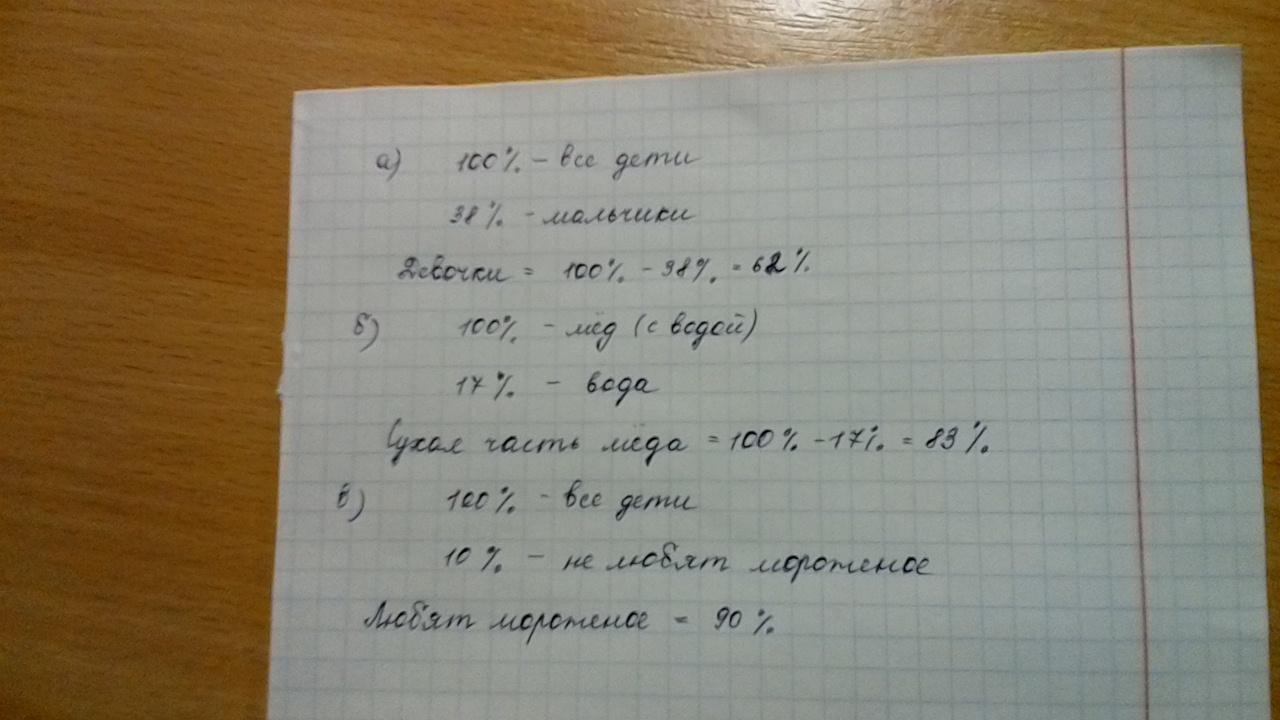 а) 100% - все дети
38% - мальчики
Девочки = 100% - 38% = 62%
б) 100% - мёд (с водой)
17% - вода
Сухая часть мёда = 100% - 17% = 83%
в) 100% - все дети
10% - не любят мороженое
Любят мороженое = 90%